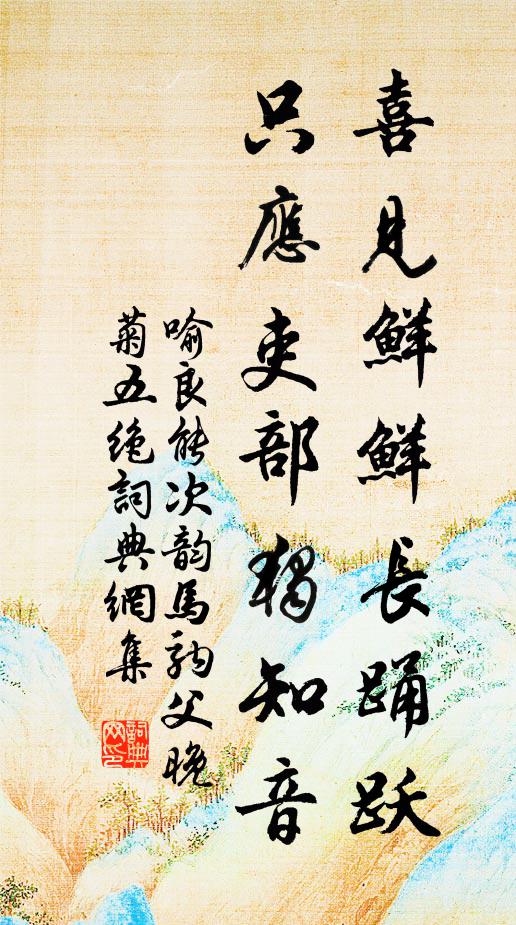 喜見鮮鮮長踊跃
只應吏部獨知音
喻良能次韵馬駒父晚
菊五绝詞典網集